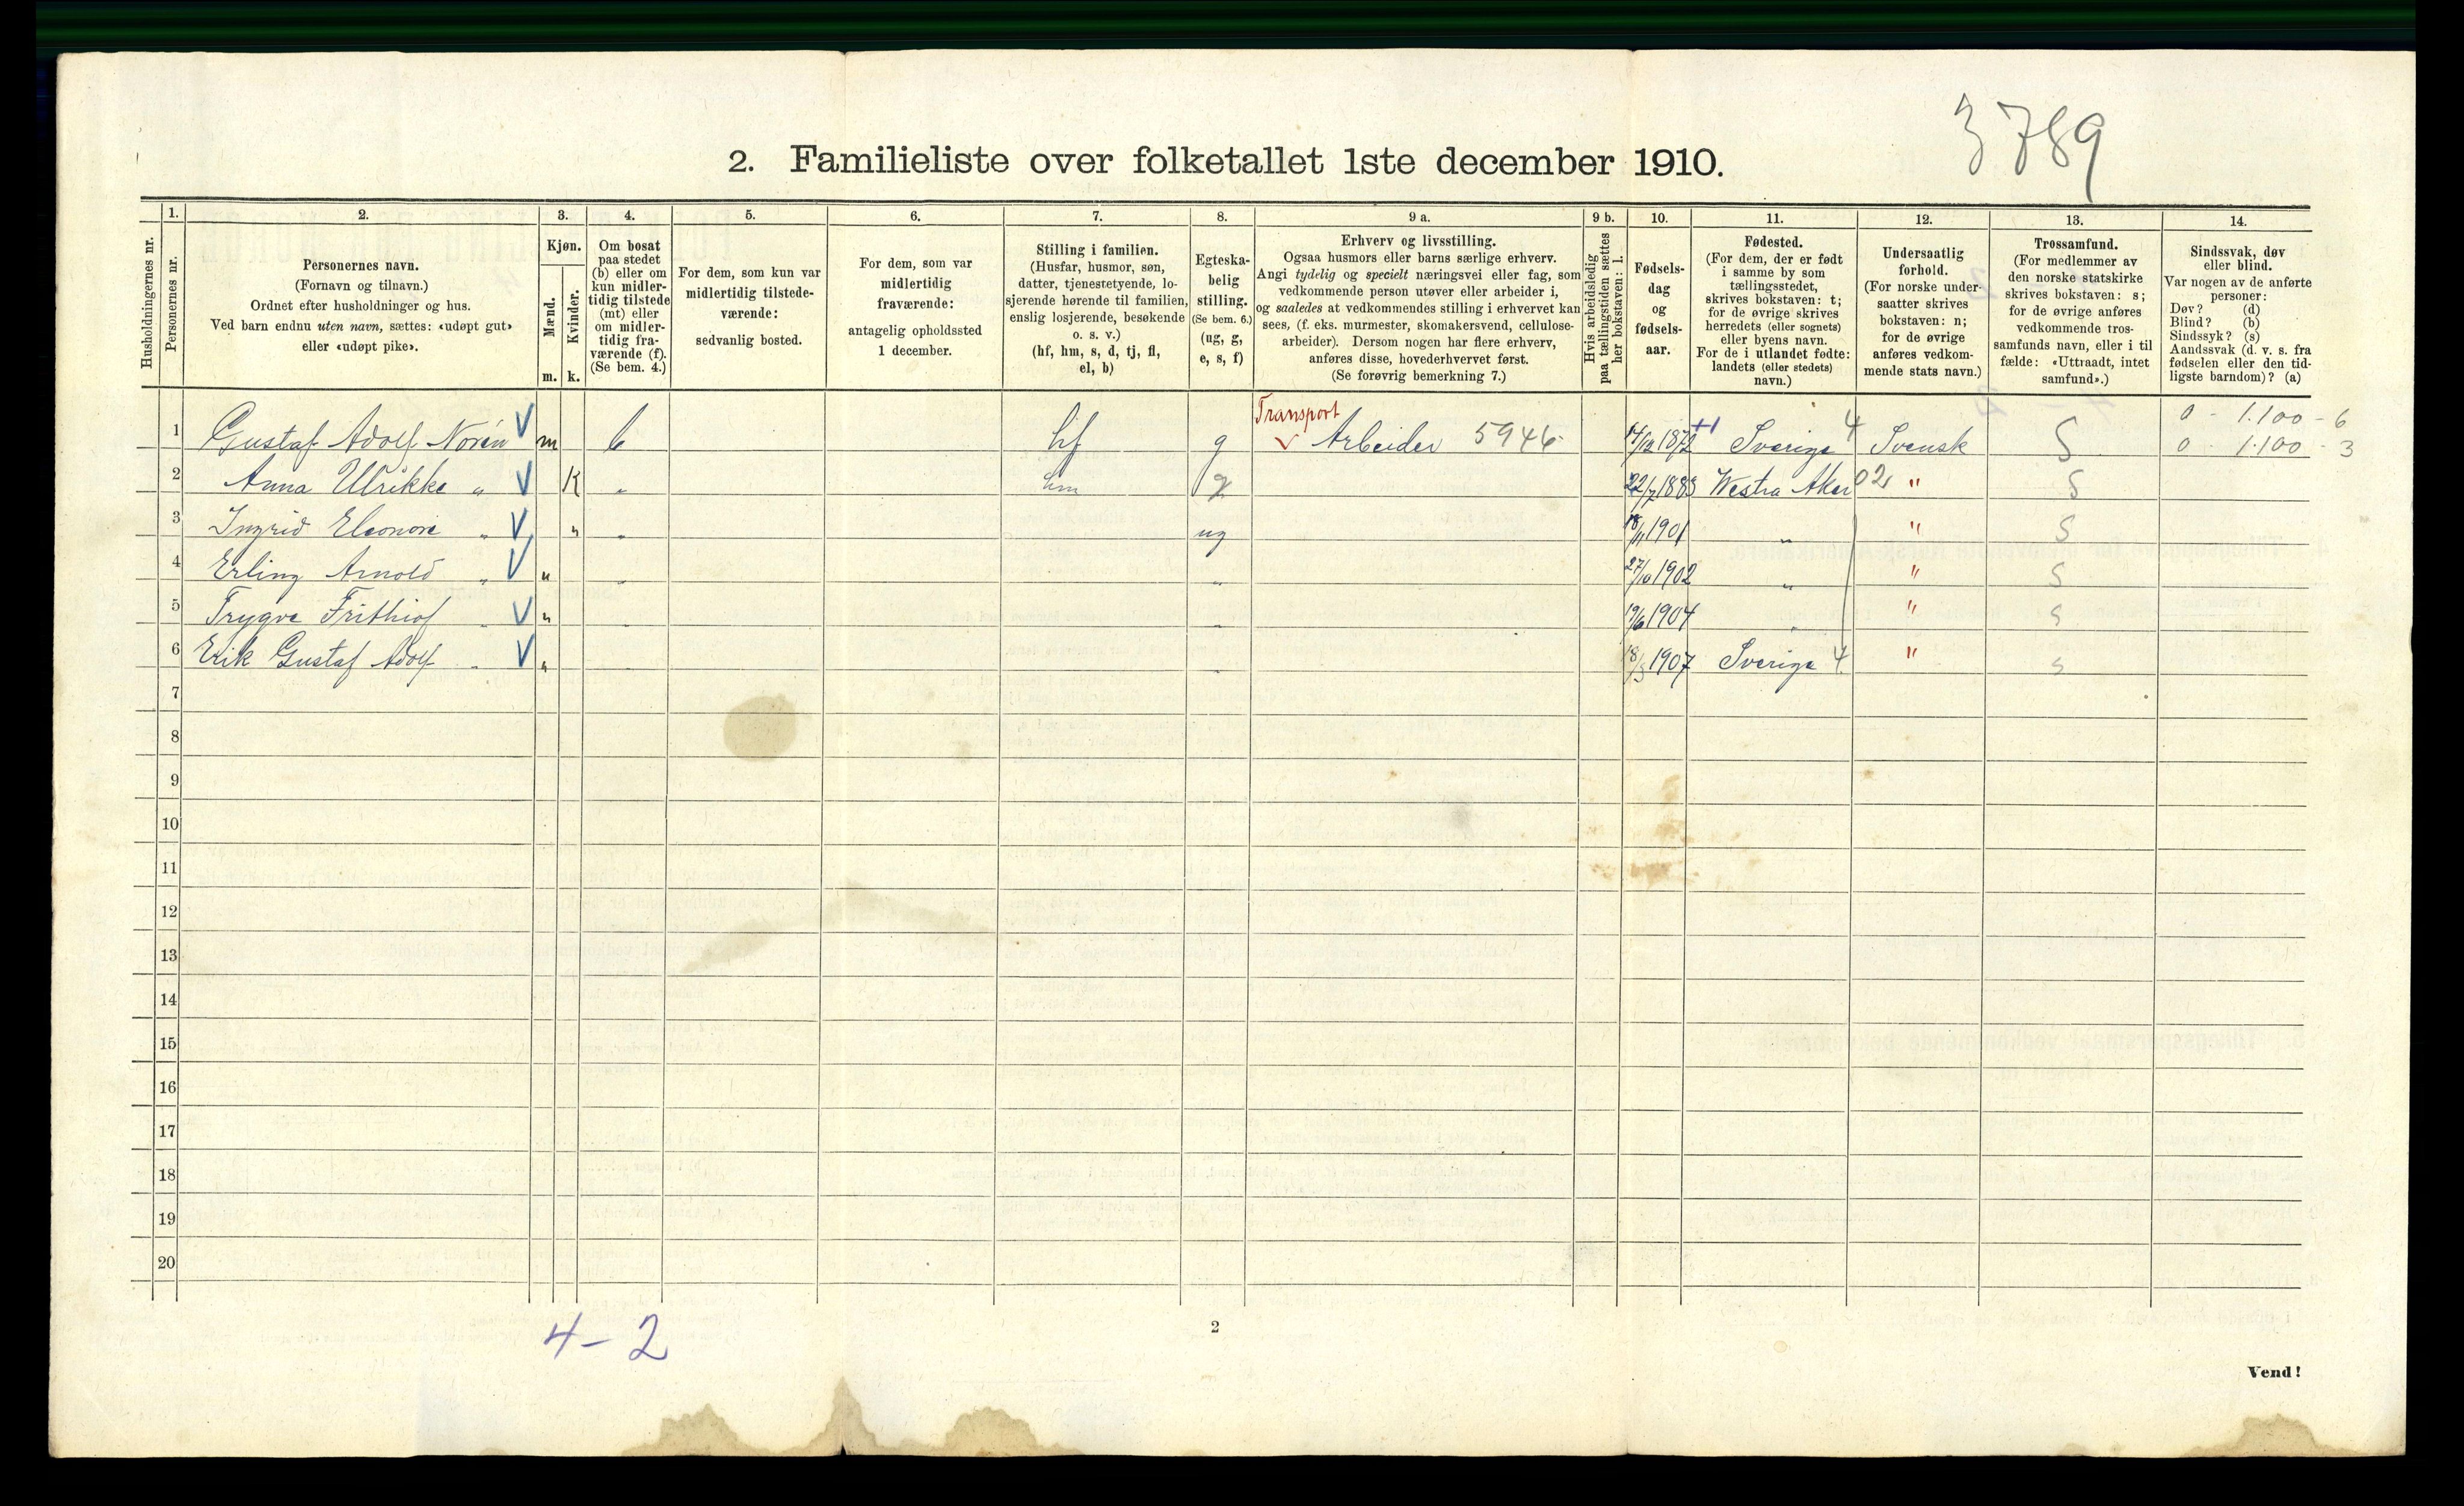 3789
2. Familieliste over folketallet 1ste december 1910.
Husholdningernes nr.
1. Personernes nr.
2. Personernes navn. (Fornavn og tilnavn.) Ordnet efter husholdninger og hus. Ved barn endnu uten navn, sættes: «udøpt gut» eller «udøpt pike».
3. Kjøn. Mænd. m. Kvinder. k.
4. Om bosat paa stedet (b) eller om kun midlertidig tilstede (mt) eller om midlertidig fraværende (f). (Se bem. 4.)
5. For dem, som kun var midlertidig tilstedeværende: sedvanlig bosted.
6. For dem, som var midlertidig fraværende: antagelig opholdssted 1 december.
7. Stilling i familien. (Husfar, husmor, søn, datter, tjenestetyende, losjerende hørende til familien, enslig losjerende, besøkende o. s. v.) (hf, hm, s, d, tj, fl, el, b)
8. Egteskabelig stilling. (Se bem. 6.) (ug, g, e, s, f)
9 a. Erhverv og livsstilling. Ogsaa husmors eller barns særlige erhverv. Angi tydelig og specielt næringsvei eller fag, som vedkommende person utøver eller arbeider i, og saaledes at vedkommendes stilling i erhvervet kan sees, (f. eks. murmester, skomakersvend, cellulosearbeider). Dersom nogen har flere erhverv, anføres disse, hovederhvervet først. (Se forøvrig bemerkning 7.)
9 b. Hvis arbeidsledig paa tællingstiden sættes her bokstaven: l.
10. Fødselsdag og fødselsaar.
11. Fødested. (For dem, der er født i samme by som tællingsstedet, skrives bokstaven: t; for de øvrige skrives herredets (eller sognets) eller byens navn. For de i utlandet fødte: landets (eller stedets) navn.)
12. Undersaatlig forhold. (For norske undersaatter skrives bokstaven: n; for de øvrige anføres vedkommende stats navn.)
13. Trossamfund. (For medlemmer av den norske statskirke skrives bokstaven: s; for de øvrige anføres vedkommende trossamfunds navn, eller i tilfælde: «Uttraadt, intet samfund».)
14. Sindssvak, døv eller blind. Var nogen av de anførte personer: Døv? (d) Blind? (b) Sindssyk? (s) Aandssvak (d. v. s. fra fødselen eller den tidligste barndom)? (a)
Transport 0 - 1.100 - 6
1 Gustaf Adolf Norén V m b hf g Arbeider 5946 14/12 1872 Sverige 4 Svensk S 0 - 1.100 - 3
2 Anna Ulrikke " V K " hm g 22/7 1883 Westra Aker 02 " S
3 Ingrid Eleonore " V " " ug 18/11 1901 " " S
4 Erling Arnold " V " " " 27/10 1902 " " S
5 Trygve Frithiof " V " " " 19/6 1904 " " S
6 Erik Gustaf Adolf " V " " " 18/3 1907 Sverige 4 " S
7
8
9
10
11
12
13
14
15
16
17
18
19
20
4 - 2
2
Vend!